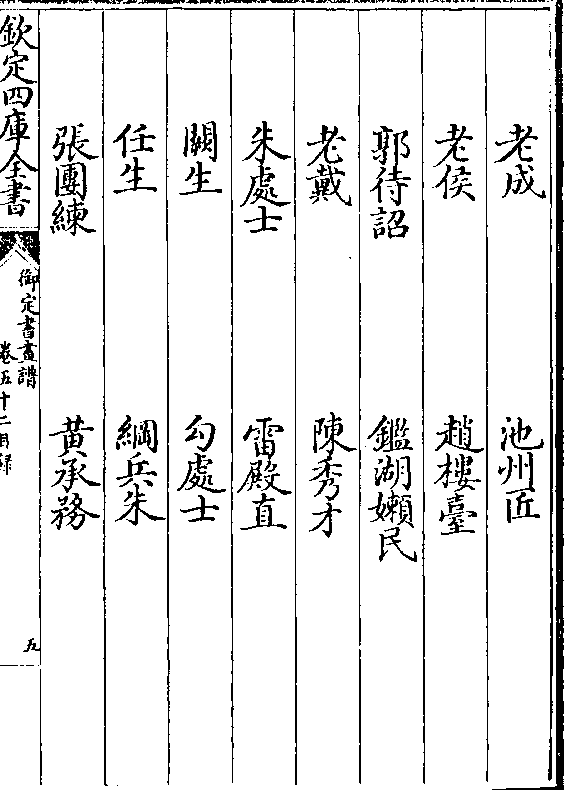 老成 池州匠
老侯 趙樓臺
郭待詔 鑑湖嬾民
老戴 陳秀才
朱處士 雷殿直
闗生 勾處士
任生 綱兵朱
張團練 黄承務
欽定四庫全書
御定書畫譜
卷五十二目録
五